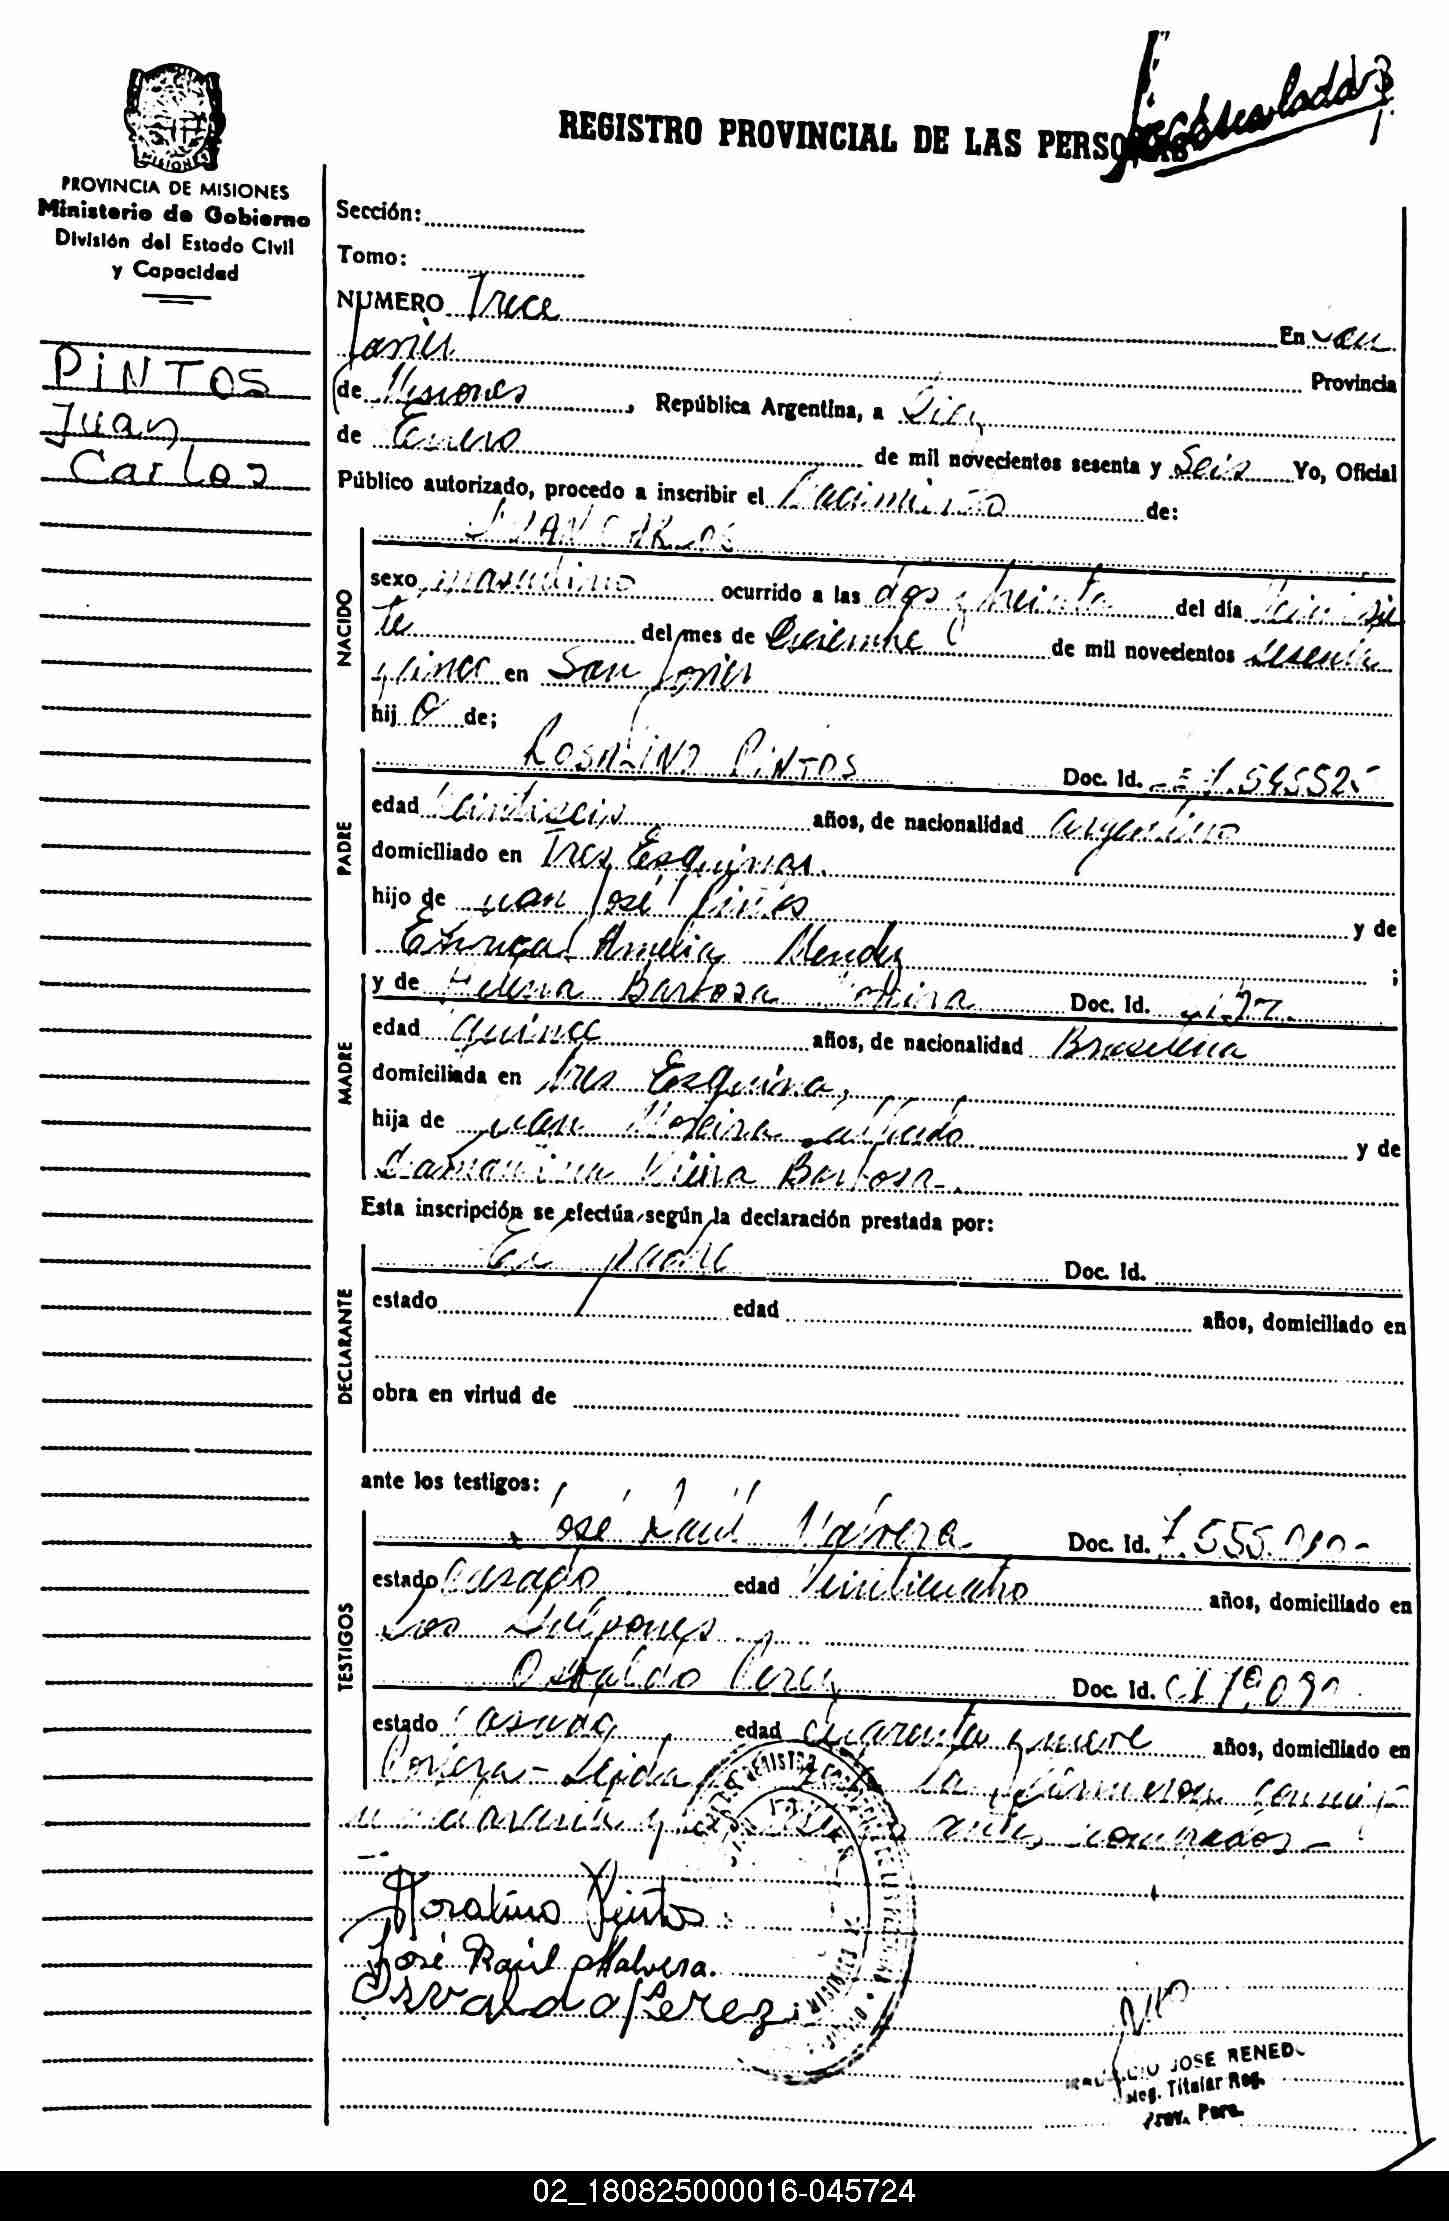 REGISTRO PROVINCIAL DE LAS PERSONAS
PROVINCIA DE MISIONES
Ministerio de Gobierno
División del Estado Civil
y Capacidad
PiNTOS
Juan
Carlos
Sección:
Tomo:
NUMERO Trece En San
Javier Provincia
de Misiones, República Argentina, a Diez
de Enero de mil novecientos sesenta y Seis Yo, Oficial
Público autorizado, procedo a inscribir el Nacimiento de:
NACIDO
JUAN CARLOS
sexo masculino ocurrido a las dos y treinta del día Veintisie
te del mes de Diciembre de mil novecientos sesenta
y cinco en San Javier
hijo de;
PADRE
ROSALINO PINTOS Doc. Id.
edad Veintiseis años, de nacionalidad argentino
domiciliado en Tres Esquinas.
hijo de Juan José Pintos y de
Amelia Mendez ;
MADRE
y de Helena Barboza Doc. Id.
edad Quince años, de nacionalidad Brasileña
domiciliada en Tres Esquina,
hija de Juan Moreira y de
Vieira Barbosa.
Esta inscripción se efectúa según la declaración prestada por:
DECLARANTE
El padre Doc. Id.
estado edad años, domiciliado en
obra en virtud de
ante los testigos:
TESTIGOS
José Raúl Doc. Id. 7.555.
estado Casado edad Veinticuatro años, domiciliado en
Los Galpones
Osvaldo Perez Doc. Id.
estado Casado edad cuarenta y nueve años, domiciliado en
Leída la firmaron conmi-
antes nombrados-
Pintos
José Raúl
Osvaldo Perez
JOSE RENEDO
Titular Reg.
Prov. Pers.
02_180825000016-045724